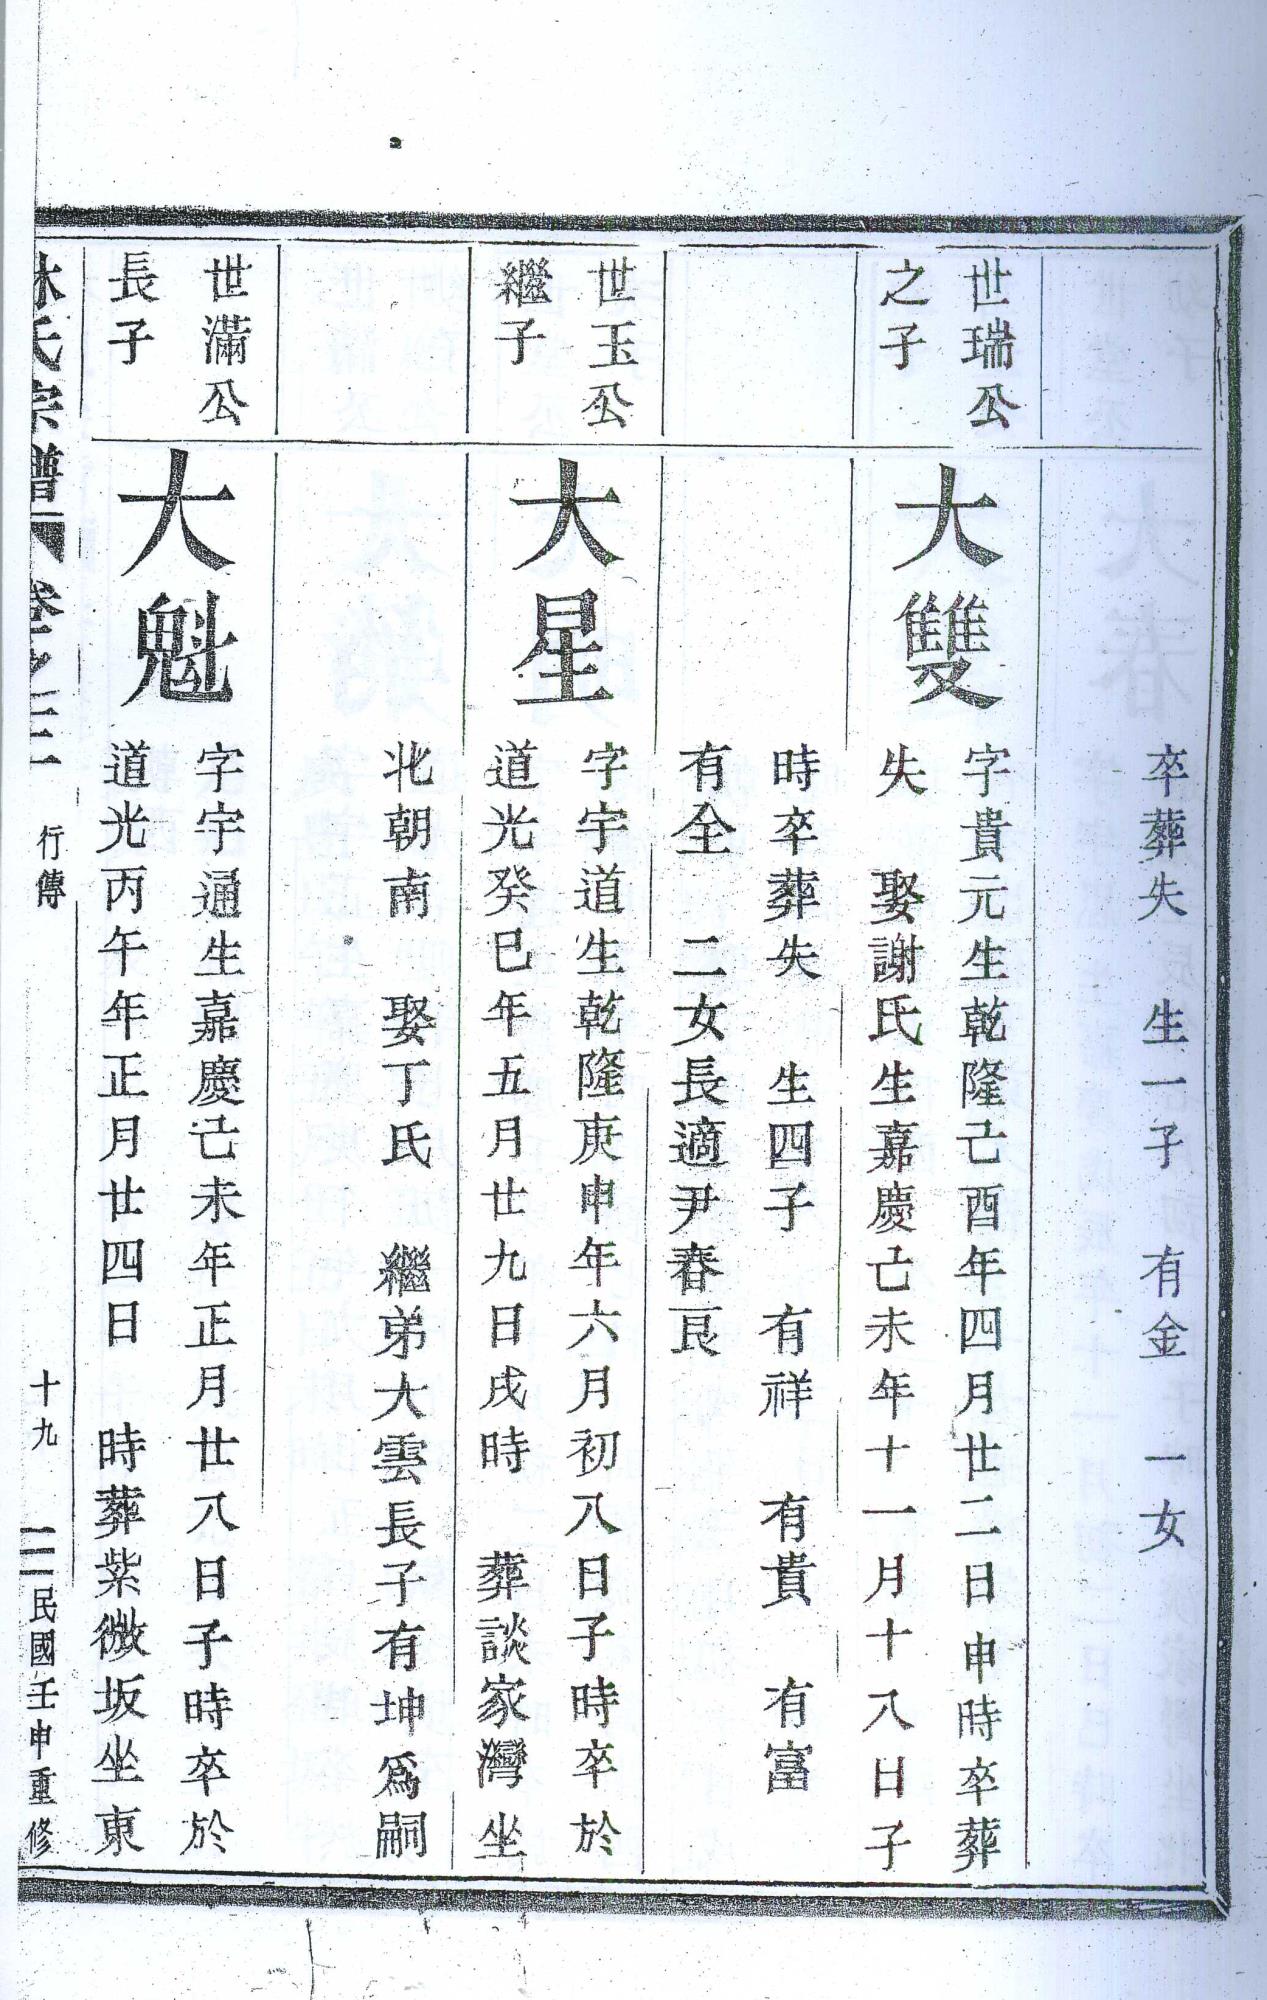 卒葬失　生一子　有金　一女
世瑞公
之子
大雙
字貴元生乾隆己酉年四月廿二日申時卒葬
失　娶謝氏生嘉慶己未年十一月十八日子
時卒葬失　生四子　有祥　有貴　有富
有全　二女長適尹春艮
世玉公
繼子
大星
字宇道生乾隆庚申年六月初八日子時卒於
道光癸巳年五月廿九日戌時　葬談家灣坐
北朝南　娶丁氏　繼弟大雲長子有坤爲嗣
世滿公
長子
大魁
字宇通生嘉慶己未年正月廿八日子時卒於
道光丙午年正月廿四日　時葬紫微坂坐東
林氏宗譜　卷之三　行傳　十九　民國壬申重修